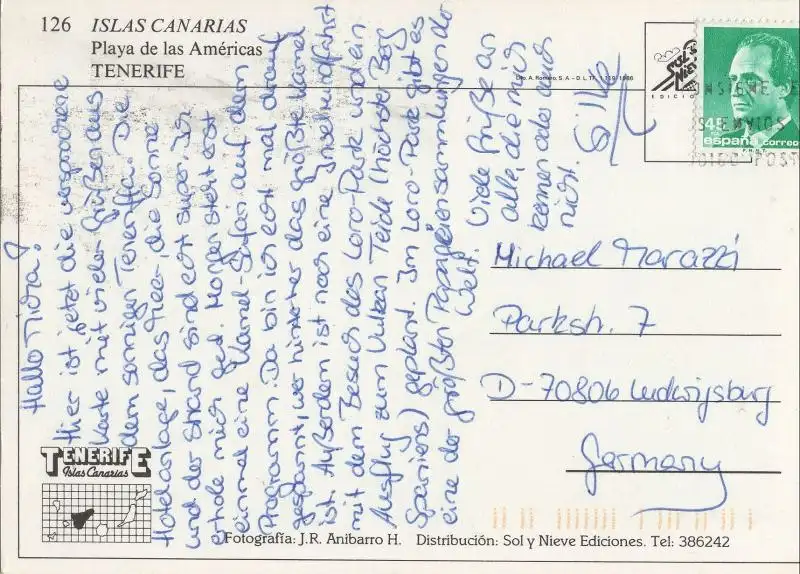 126 ISLAS CANARIAS
Playa de las Américas
TENERIFE
Hallo
Hier ist jetzt die versprochene
Karte mit vielen Grüßen aus
dem sonnigen Teneriffa. Die
Hotelanlage, das Meer, die Sonne
und der Strand sind echt super. Ich
erhole mich gut. Morgen steht erst
einmal eine Kamel-Safari auf dem
Programm. Da bin ich echt mal drauf
gespannt, wer hinterher das größte Kamel
ist. Außerdem ist noch eine Inselrundfahrt
mit dem Besuch des Loro-Park und ein
Ausflug zum Vulkan Teide (höchster Berg
Spaniens) geplant. Im Loro-Park gibt es
eine der größten Papageiensammlungen der
Welt.
Viele Grüße an
alle, die mich
kennen oder auch
nicht
Silke
SOL Y NIEVE
EDICIO
España correos
F.N.M.T.
ENVIOS
POST
Michael Marazzi
Parkstr. 7
D-70806 Ludwigsburg
Germany
TENERIFE
Islas Canarias
Fotografía: J.R. Anibarro H. Distribución: Sol y Nieve Ediciones. Tel: 386242